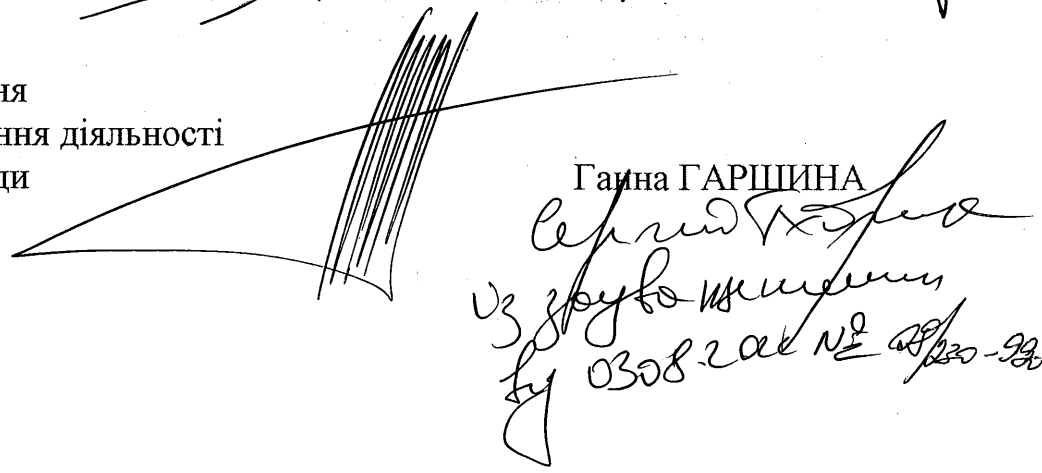 ня
ння діяльності
ди
Ганна ГАРШИНА
Сергій
із зауваженнями
від 03.08.2021 №